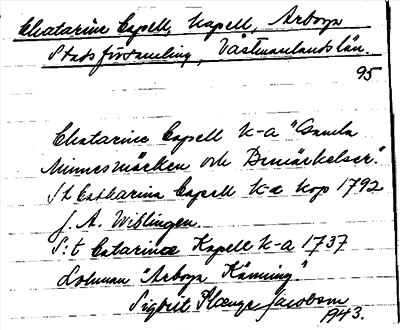 Chatarine Capell, Kapell, Arboga
Stadsförsamling, Västmanlands län.
95
Chatarine Capell k-a "Gamla
Minnesmärken och Bemärkelser".
St Catharina Capell k-a kop 1792
J. A. Wiblingen.
S:t Catarinæ Kapell k-a 1737
Lohman "Arboga Känning".
Sigbrit Plænge Jacobson
1943.